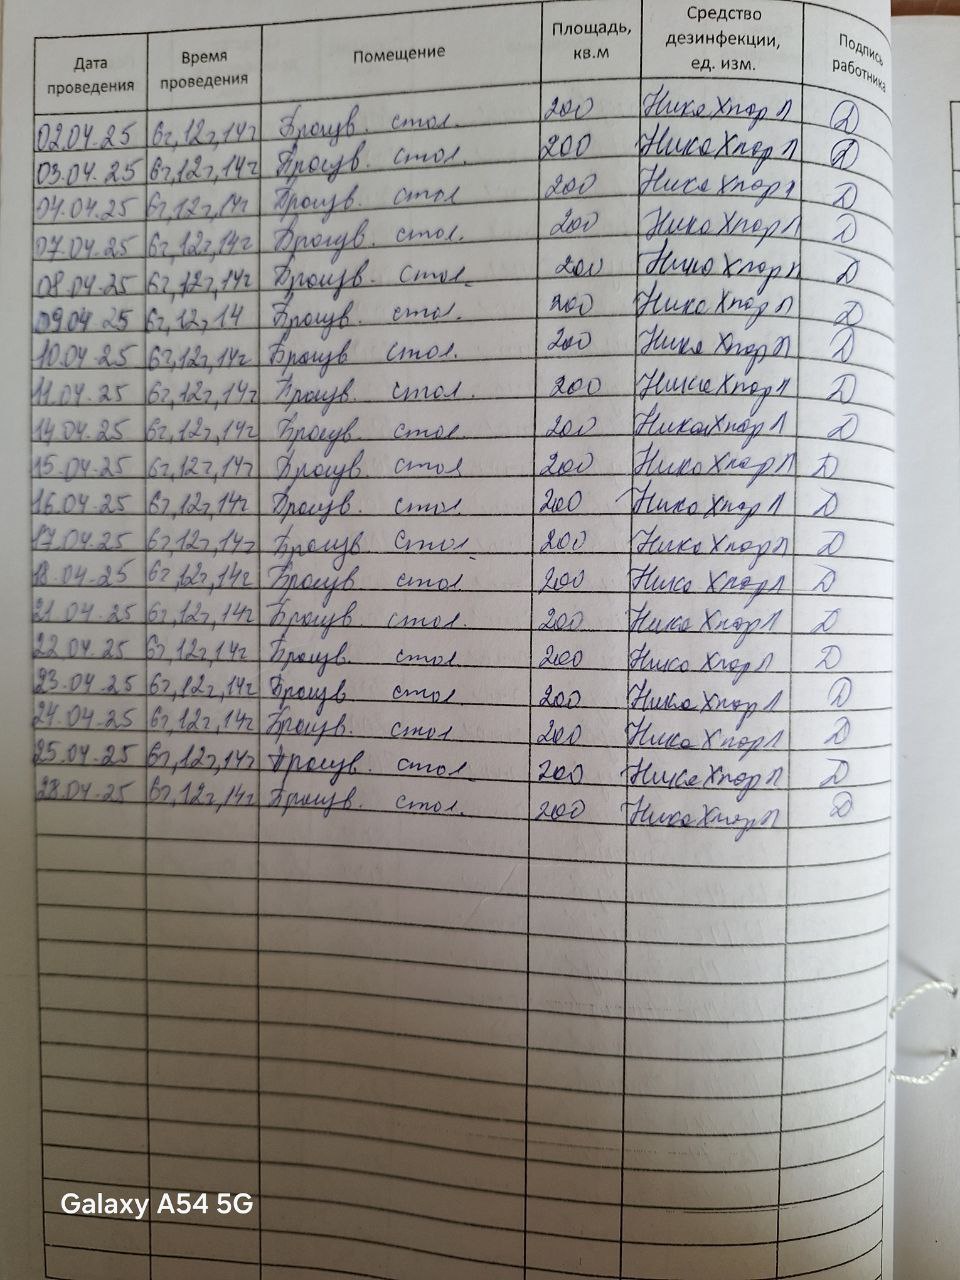 Дата проведения | Время проведения | Помещение | Площадь, кв.м | Средство дезинфекции, ед. изм. | Подпись работника
02.04.25 | 6ч,12ч,14ч | Произв. стол. | 200 | Ника Хлор Л | Д
03.04.25 | 6ч,12ч,14ч | Произв. стол. | 200 | Ника Хлор Л | Д
04.04.25 | 6ч,12ч,14ч | Произв. стол | 200 | Ника Хлор Л | Д
07.04.25 | 6ч,12ч,14ч | Произв. стол. | 200 | Ника Хлор Л | Д
08.04.25 | 6ч,12ч,14ч | Произв. стол. | 200 | Ника Хлор Л | Д
09.04 25 | 6ч,12ч,14 | Произв. стол. | 200 | Ника Хлор Л | Д
10.04.25 | 6ч,12ч,14ч | Произв стол. | 200 | Ника Хлор Л | Д
11.04.25 | 6ч,12ч,14ч | Произв. стол. | 200 | Ника Хлор Л | Д
14.04.25 | 6ч,12ч,14ч | Произв. стол. | 200 | Ника Хлор Л | Д
15.04.25 | 6ч,12ч,14ч | Произв. стол | 200 | Ника Хлор Л | Д
16.04.25 | 6ч,12ч,14ч | Произв. стол. | 200 | Ника Хлор Л | Д
17.04.25 | 6ч,12ч,14ч | Произв. стол. | 200 | Ника Хлор Л | Д
18.04.25 | 6ч,12ч,14ч | Произв. стол | 200 | Ника Хлор Л | Д
21.04.25 | 6ч,12ч,14ч | Произв. стол. | 200 | Ника Хлор Л | Д
22.04.25 | 6ч,12ч,14ч | Произв. стол. | 200 | Ника Хлор Л | Д
23.04.25 | 6ч,12ч,14ч | Произв стол. | 200 | Ника Хлор Л | Д
24.04.25 | 6ч,12ч,14ч | Произв. стол | 200 | Ника Хлор Л | Д
25.04.25 | 6ч,12ч,14ч | Произв. стол. | 200 | Ника Хлор Л | Д
28.04.25 | 6ч,12ч,14ч | Произв. стол. | 200 | Ника Хлор Л | Д
Galaxy A54 5G